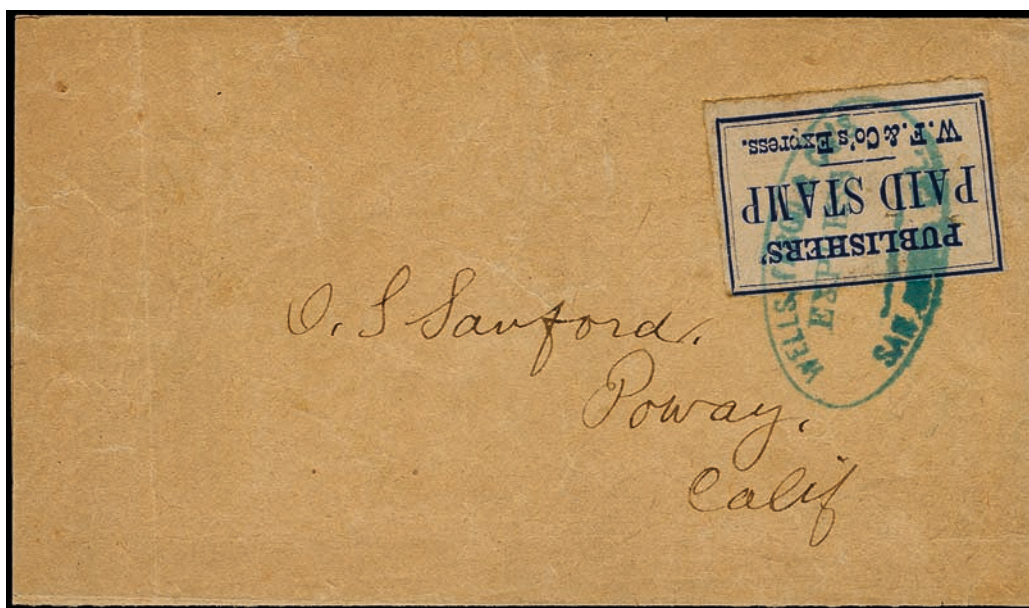 PUBLISHERS'
PAID STAMP
W. F. & Co's Express.
WELLS
EXP
SAN
O. S Sanford.
Poway,
Calif